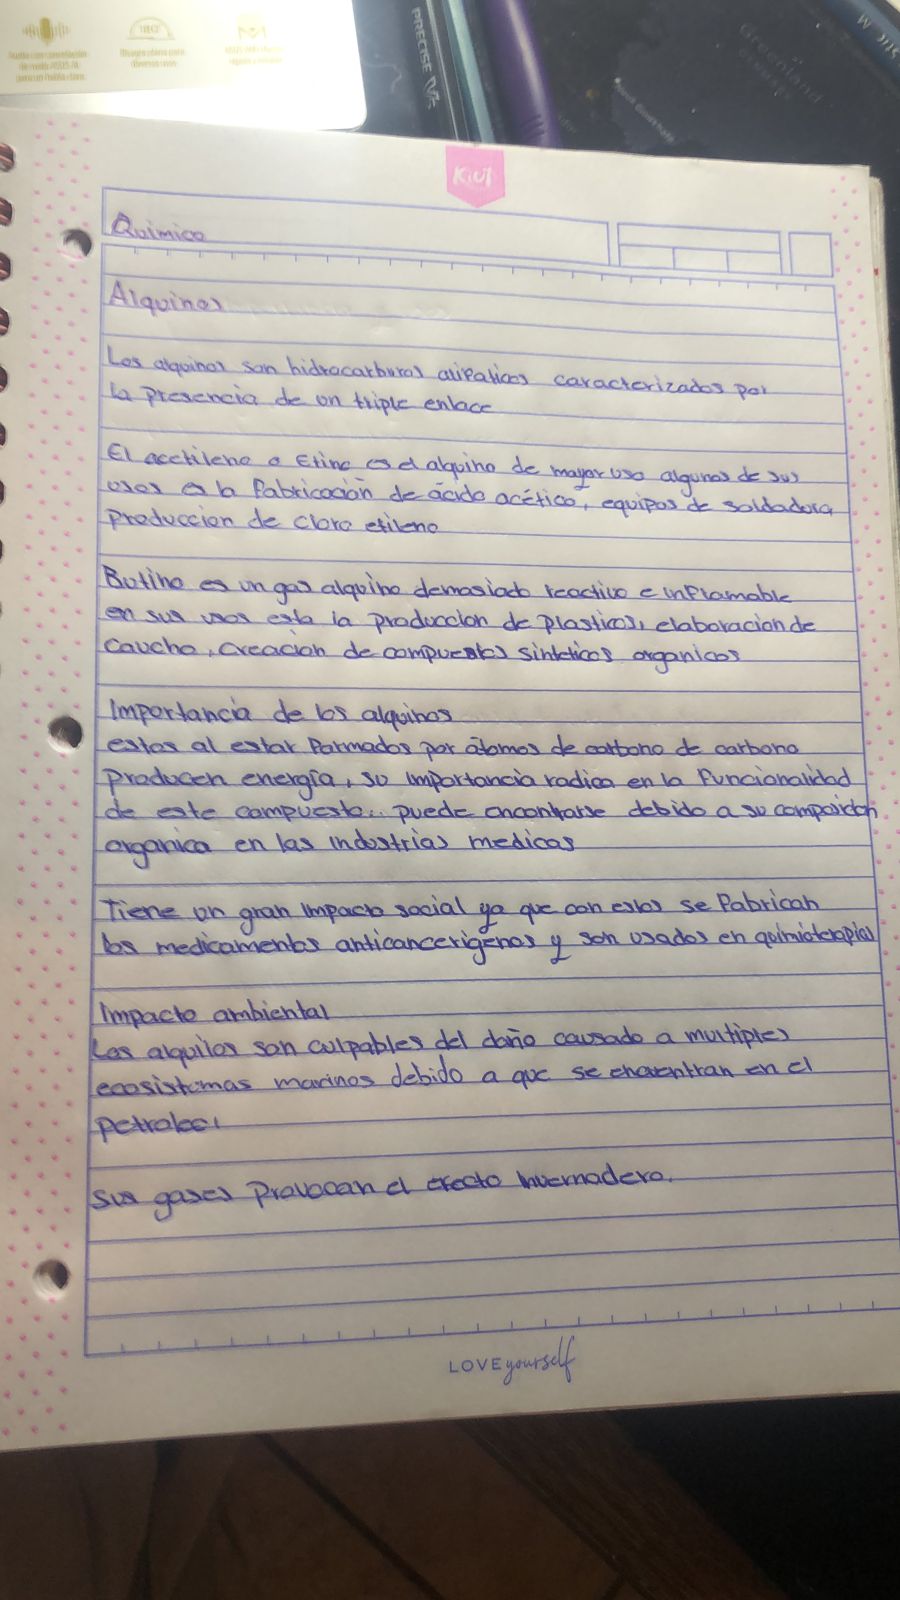 PRECISE V5
Greenland
KIUT
Quimica
Alquinos
Los alquinos son hidrocarburos alifaticos caracterizados por
la presencia de un triple enlace
El acetileno o Etino es el alquino de mayor uso algunos de sus
usos es la fabricación de ácido acético, equipos de soldadura
produccion de cloro etileno
Butino es un gas alquino demasiado reactivo e inflamable
en sus usos esta la produccion de plasticos, elaboracion de
caucho, creacion de compuestos sinteticos organicos
Importancia de los alquinos
estos al estar formados por átomos de carbono de carbono
producen energía, su importancia radica en la funcionalidad
de este compuesto.. puede encontrarse debido a su
organica en las industrias medicas
Tiene un gran impacto social ya que con estos se fabrican
los medicamentos anticancerigenos y son usados en quimioterapias
Impacto ambiental
Los alquilos son culpables del daño causado a multiples
ecosistemas marinos debido a que se encuentran en el
petroleo,
sus gases provocan el efecto invernadero.
LOVE yourself